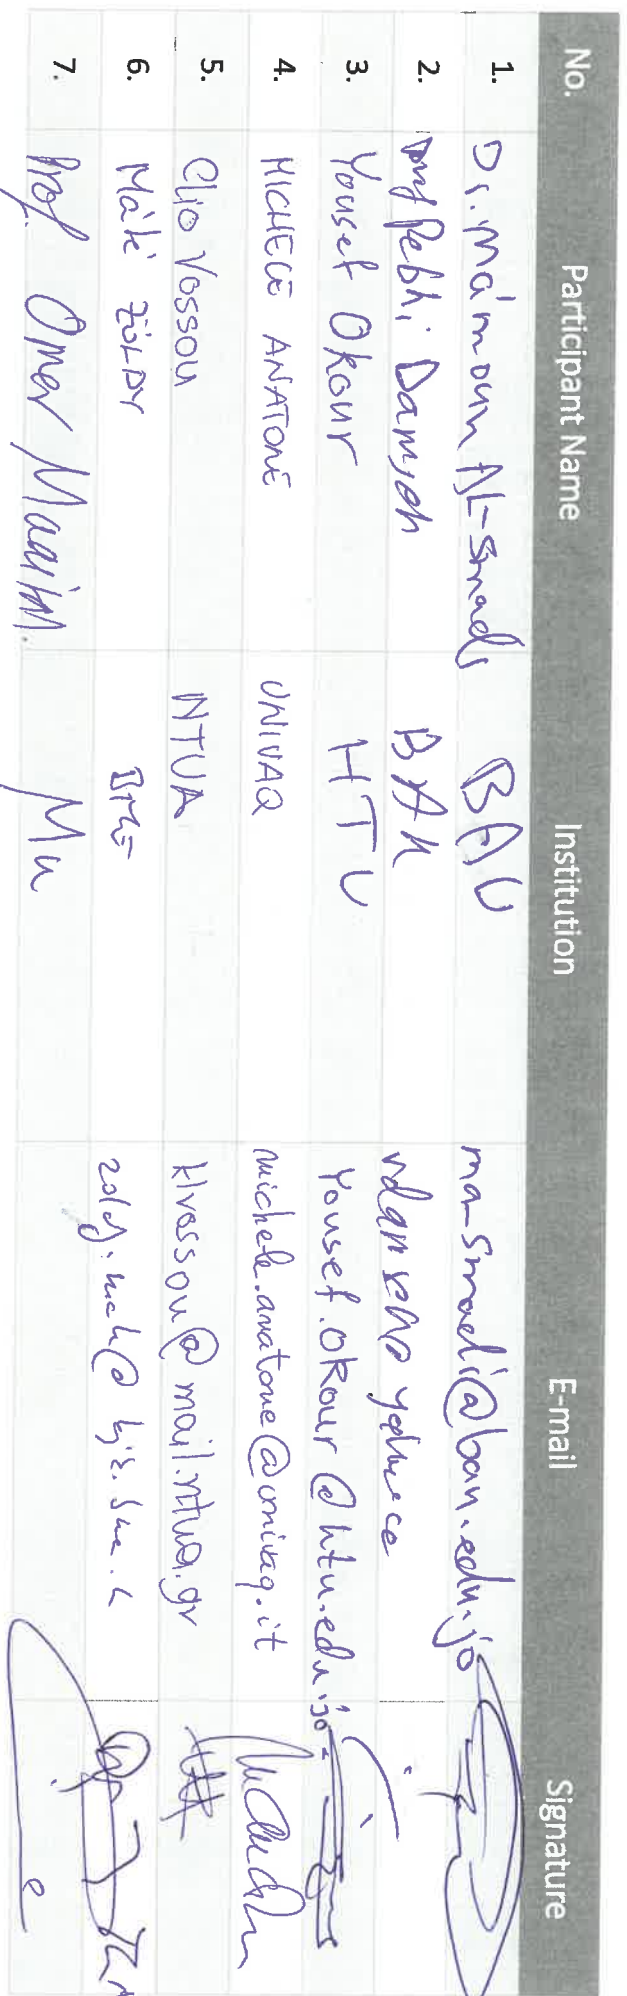 No. Participant Name Institution E-mail Signature
1. Dr. Ma'moun AL-Smadi BAU ma-smadi@bau.edu.jo
2. Damseh BAU
3. Yousef Okour HTU Yousef.okour@htu.edu.jo
4. MICHELE ANATONE UNIVAQ michele.anatone@univaq.it
5. Clio Vossou NTUA klvossou@mail.ntua.gr
6. Máté ZÖLDY BME
7. Prof. Omar Maaitah MU